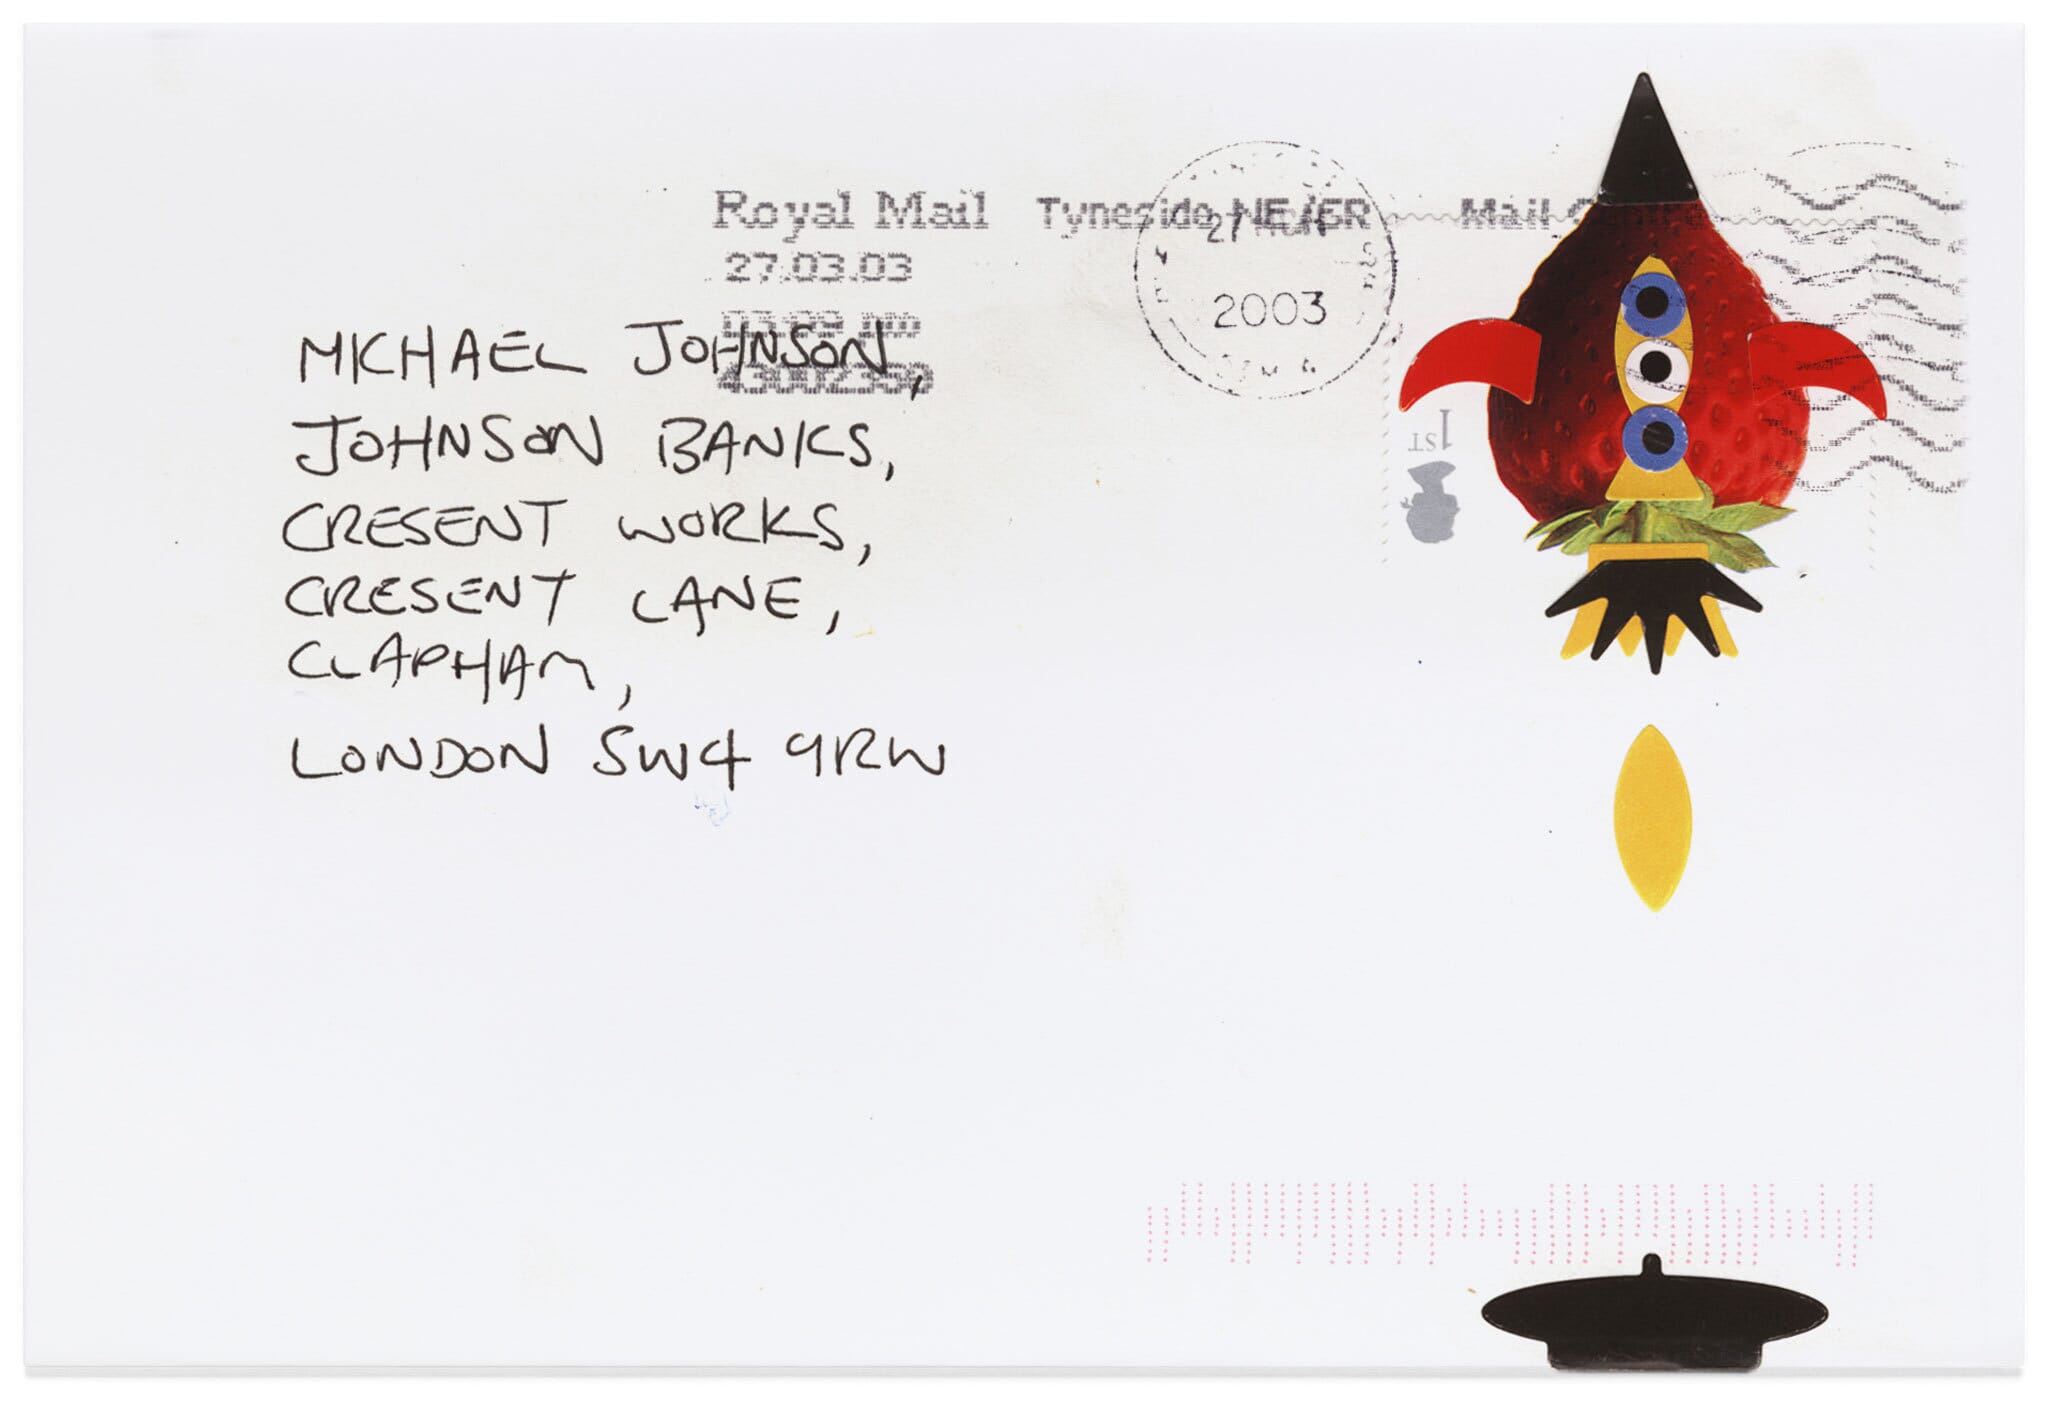 Royal Mail Tyneside NE/SR Mail Centre
27.03.03
2003
1ST
MICHAEL JOHNSON,
JOHNSON BANKS,
CRESENT WORKS,
CRESENT LANE,
CLAPHAM,
LONDON SW4 9RW